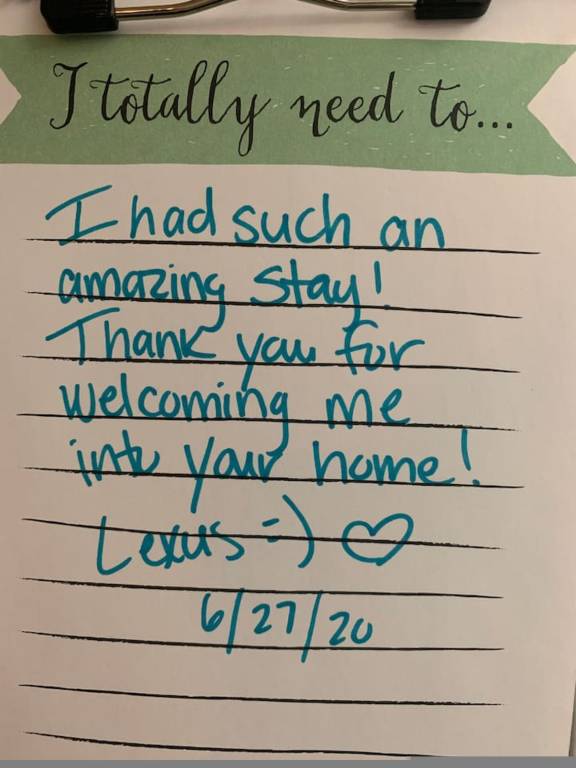 I totally need to...
I had such an
amazing stay!
Thank you for
welcoming me
into your home!
Lexus =) ♡
6/27/20